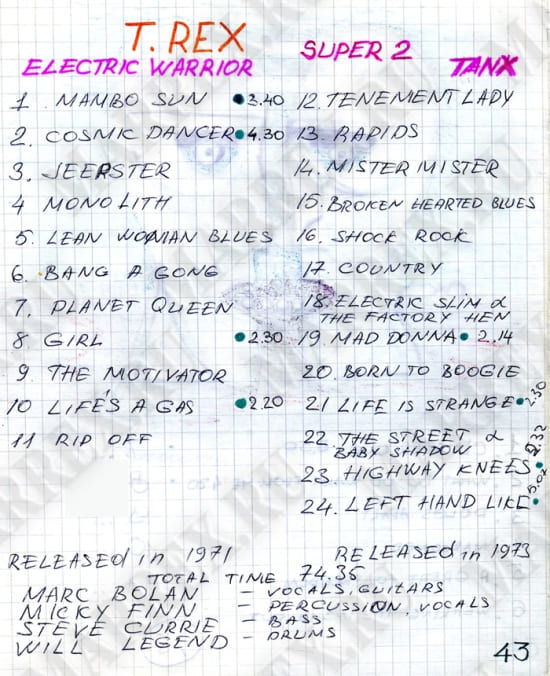 T. REX
SUPER 2
ELECTRIC WARRIOR
TANX
1 MAMBO SUN • 3.40
2. COSMIC DANCER • 4.30
3. JEEPSTER
4 MONOLITH
5. LEAN WOMAN BLUES
6. BANG A GONG
7. PLANET QUEEN
8 GIRL • 2.30
9 THE MOTIVATOR
10 LIFE'S A GAS • 2.20
11 RIP OFF
12. TENEMENT LADY
13. RAPIDS
14. MISTER MISTER
15. BROKEN HEARTED BLUES
16. SHOCK ROCK
17. COUNTRY
18. ELECTRIC SLIM &
THE FACTORY HEN
19. MAD DONNA • 2.14
20. BORN TO BOOGIE
21 LIFE IS STRANGE • 2.30
22. THE STREET &
BABY SHADOW
23. HIGHWAY KNEES • 2.32
24. LEFT HAND LIKE • 5.02
RELEASED in 1971
RELEASED in 1973
TOTAL TIME 74.35
MARC BOLAN - VOCALS, GUITARS
MICKY FINN - PERCUSSION, VOCALS
STEVE CURRIE - BASS
WILL LEGEND - DRUMS
43